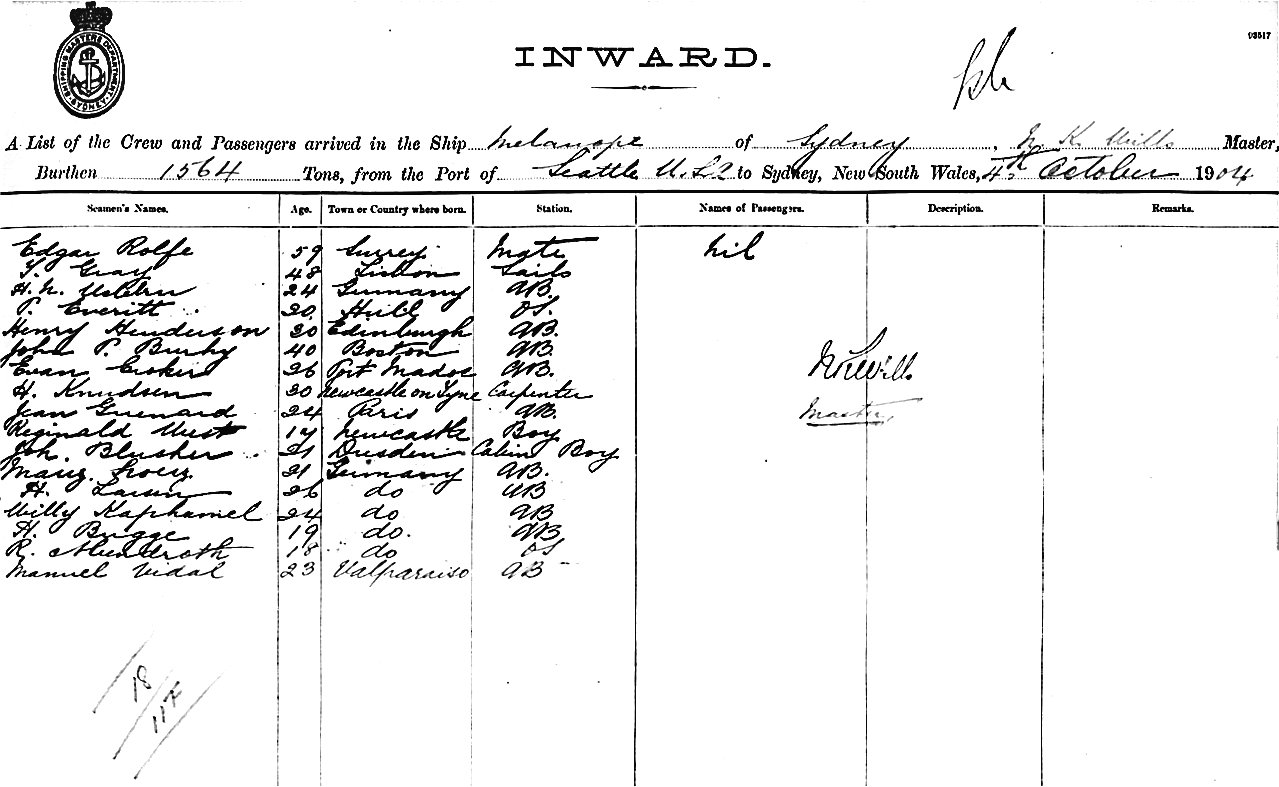 SHIPPING MASTERS DEPARTMENT SYDNEY
93517
INWARD.
A List of the Crew and Passengers arrived in the Ship Melanope of Sydney, N. K. Wills Master,
Burthen 1564 Tons, from the Port of Seattle U.S. to Sydney, New South Wales, 4th October 1904
Seamen's Names. Age. Town or Country where born. Station. Names of Passengers. Description. Remarks.
Edgar Rolfe 59 Surrey Mate Nil
T. Gray 48 Lisbon Sails
H. N. 24 Germany AB.
P. Everitt 20 Hull OS.
Henry Henderson 30 Edinburgh AB.
John P. Burhy 40 Boston AB.
Evan 26 Port Madoc AB.
H. Knudsen 30 Newcastle on Tyne Carpenter
Jean Guenard 24 Paris AB.
Reginald West 17 Newcastle Boy
Joh. Blusher 21 Dresden Cabin Boy
21 Germany AB.
H. Larsen 26 do AB
Willy Kaphamel 24 do AB
H. Bugge 19 do. AB
R. Mundroth 18 do OS
Manuel Vidal 23 Valparaiso AB
N K Wills
Master
18